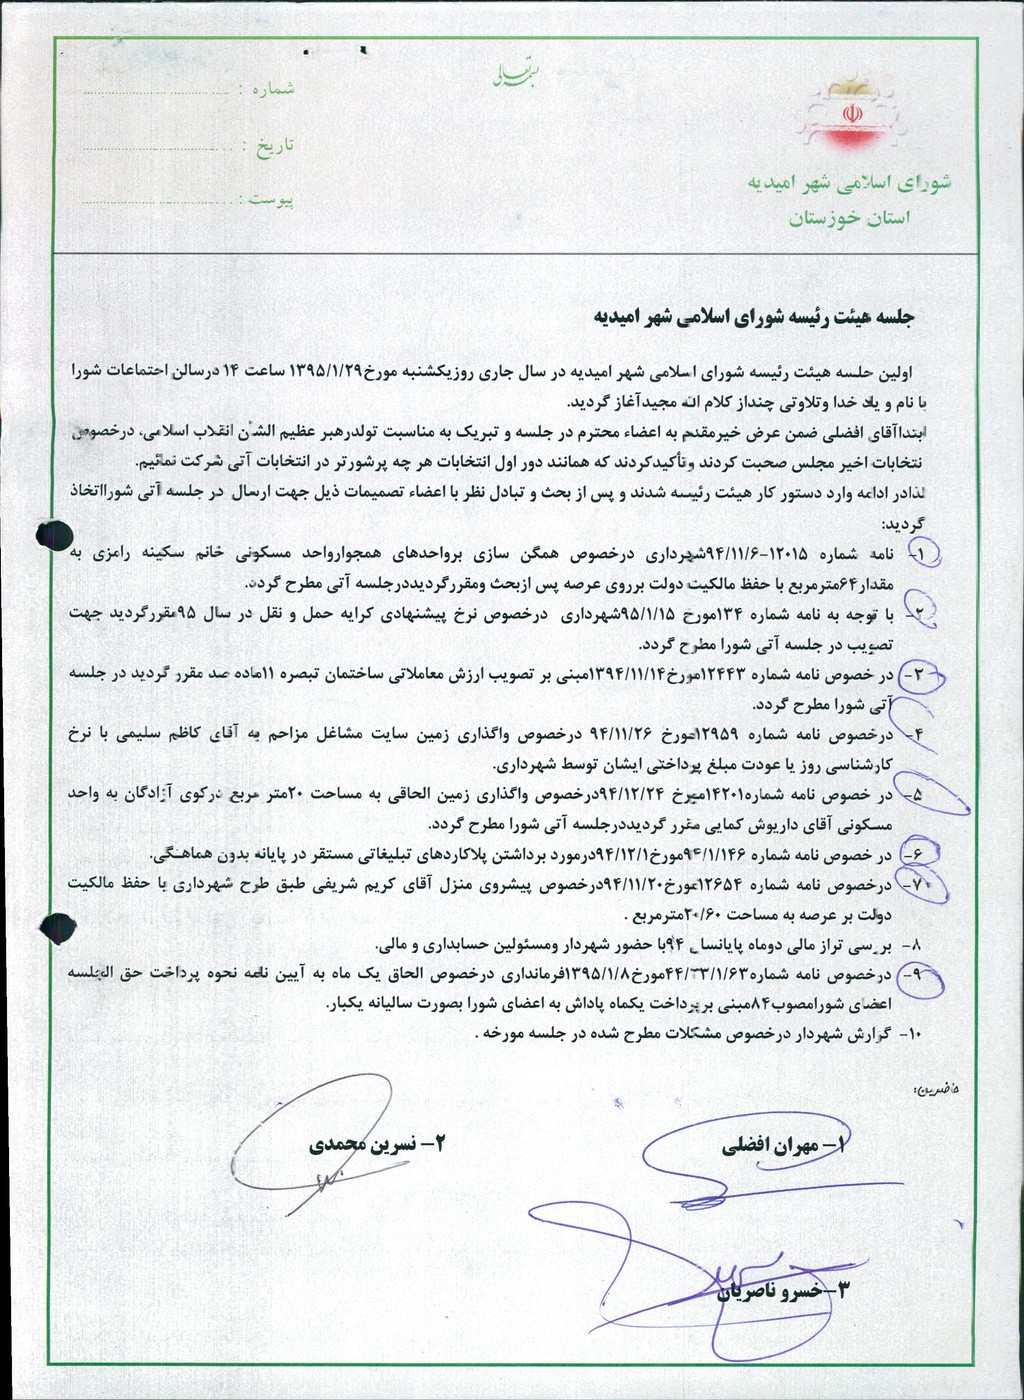 بسمه تعالی
شورای اسلامی شهر امیدیه
استان خوزستان
شماره :
تاریخ :
پیوست :
جلسه هیئت رئیسه شورای اسلامی شهر امیدیه
اولین جلسه هیئت رئیسه شورای اسلامی شهر امیدیه در سال جاری روزیکشنبه مورخ۱۳۹۵/۱/۲۹ ساعت ۱۴ درسالن اجتماعات شورا
با نام و یاد خدا وتلاوتی چنداز کلام اله مجیدآغاز گردید.
ابتداآقای افضلی ضمن عرض خیرمقدم به اعضاء محترم در جلسه و تبریک به مناسبت تولدرهبر عظیم الشأن انقلاب اسلامی، درخصوص
نتخابات اخیر مجلس صحبت کردند وتأکیدکردند که همانند دور اول انتخابات هر چه پرشورتر در انتخابات آتی شرکت نمائیم.
لذادر ادامه وارد دستور کار هیئت رئیسه شدند و پس از بحث و تبادل نظر با اعضاء تصمیمات ذیل جهت ارسال در جلسه آتی شورااتخاذ
گردید:
۱- نامه شماره ۱۲۰۱۵-۹۴/۱۱/۶شهرداری درخصوص همگن سازی برواحدهای همجوارواحد مسکونی خانم سکینه رامزی به
مقدار۶۴مترمربع با حفظ مالکیت دولت برروی عرصه پس ازبحث ومقررگردیددرجلسه آتی مطرح گردد.
۲- با توجه به نامه شماره ۱۳۴مورخ ۹۵/۱/۱۵شهرداری درخصوص نرخ پیشنهادی کرایه حمل و نقل در سال ۹۵مقررگردید جهت
تصویب در جلسه آتی شورا مطرح گردد.
۳- در خصوص نامه شماره ۱۲۴۴۳مورخ۱۳۹۴/۱۱/۱۴مبنی بر تصویب ارزش معاملاتی ساختمان تبصره ۱۱ماده صد مقرر گردید در جلسه
آتی شورا مطرح گردد.
۴- درخصوص نامه شماره ۱۲۹۵۹مورخ ۹۴/۱۱/۲۶ درخصوص واگذاری زمین سایت مشاغل مزاحم به آقای کاظم سلیمی با نرخ
کارشناسی روز یا عودت مبلغ پرداختی ایشان توسط شهرداری.
۵- در خصوص نامه شماره۱۴۲۰۱میرخ ۹۴/۱۲/۲۴درخصوص واگذاری زمین الحاقی به مساحت ۲۰متر مربع درکوی آزادگان به واحد
مسکونی آقای داریوش کمایی مقرر گردیددرجلسه آتی شورا مطرح گردد.
۶- در خصوص نامه شماره ۹۴/۱/۱۴۶مورخ۹۴/۱۲/۱درمورد برداشتن پلاکاردهای تبلیغاتی مستقر در پایانه بدون هماهنگی.
۷- درخصوص نامه شماره ۱۲۶۵۴مورخ۹۴/۱۱/۲۰درخصوص پیشروی منزل آقای کریم شریفی طبق طرح شهرداری با حفظ مالکیت
دولت بر عرصه به مساحت ۲۰/۶۰مترمربع .
۸- بررسی تراز مالی دوماه پایانسال ۹۴با حضور شهردار ومسئولین حسابداری و مالی.
۹- درخصوص نامه شماره۴۴/۳۳/۱/۶۳مورخ۱۳۹۵/۱/۸فرمانداری درخصوص الحاق یک ماه به آیین نامه نحوه پرداخت حق الجلسه
اعضای شورامصوب۸۴مبنی برپرداخت یکماه پاداش به اعضای شورا بصورت سالیانه یکبار.
۱۰- گزارش شهردار درخصوص مشکلات مطرح شده در جلسه مورخه .
حاضرین:
۱- مهران افضلی
۲- نسرین محمدی
۳-خسرو ناصریان